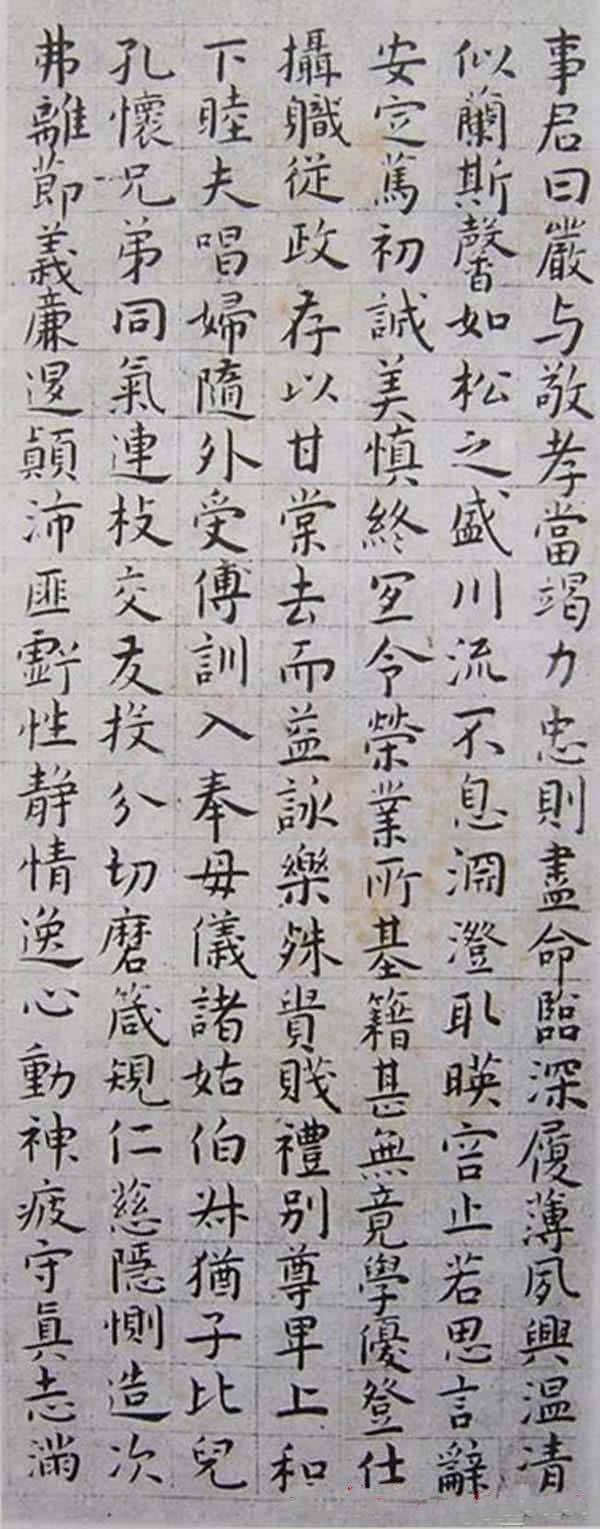 事君曰嚴与敬孝當竭力忠則盡命臨深履薄夙興温凊
似蘭斯馨如松之盛川流不息淵澄取暎容止若思言辭
安定篤初誠美慎終宜令榮業所基籍甚無竟學優登仕
攝職從政存以甘棠去而益詠樂殊貴賤禮別尊卑上和
下睦夫唱婦隨外受傅訓入奉母儀諸姑伯叔猶子比兒
孔懷兄弟同氣連枝交友投分切磨箴規仁慈隱惻造次
弗離節義廉退顛沛匪虧性静情逸心動神疲守真志滿